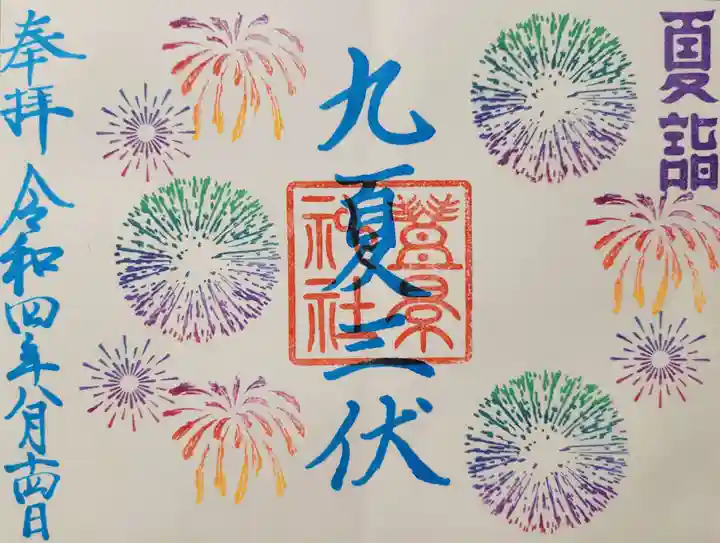 夏詣
九夏三伏
奉拝 令和四年八月十四日